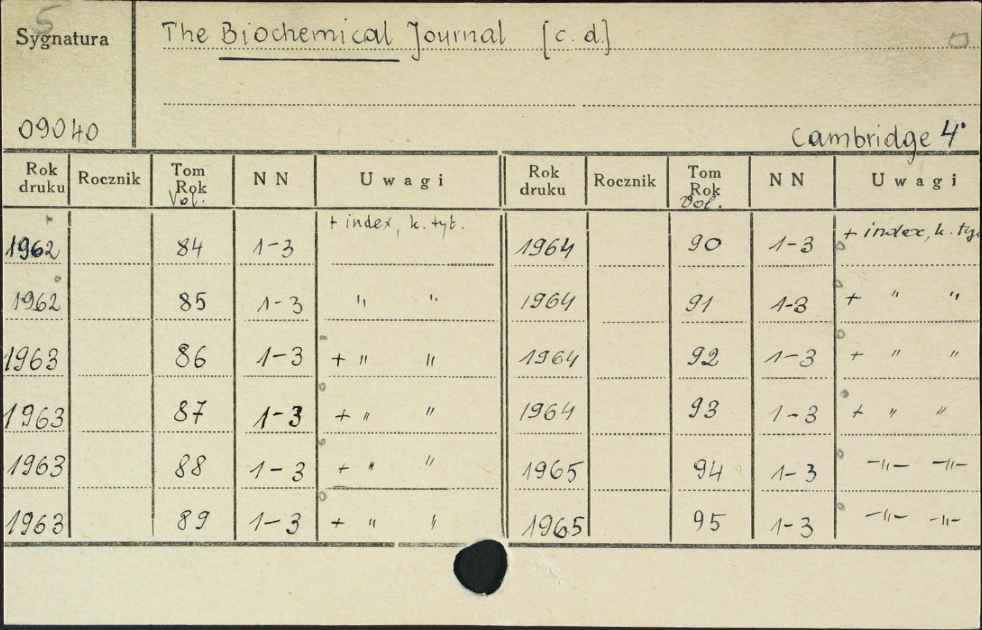 5
Sygnatura The Biochemical Journal [c. d.]
09040 Cambridge 4°
Rok druku Rocznik Tom Rok Vol. N N Uwagi Rok druku Rocznik Tom Rok Vol. N N Uwagi
1962 84 1-3 + index, k. tyt. 1964 90 1-3 + index, k. tyt
1962 85 1-3 " " 1964 91 1-3 + " "
1963 86 1-3 + " " 1964 92 1-3 + " "
1963 87 1-3 + " " 1964 93 1-3 + " "
1963 88 1-3 + " " 1965 94 1-3 -"- -"-
1963 89 1-3 + " " 1965 95 1-3 -"- -"-